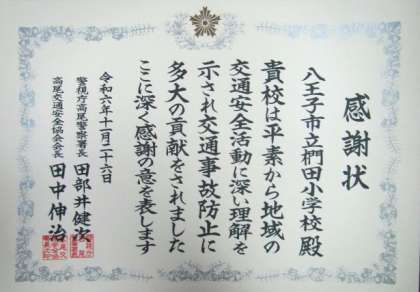 感謝状
八王子市立椚田小学校殿
貴校は平素から地域の
交通安全活動に深い理解を
示され交通事故防止に
多大の貢献をされました
ここに深く感謝の意を表します
令和六年十一月二十六日
警視庁高尾警察署長 田部井健次
高尾交通安全協会会長 田中伸治